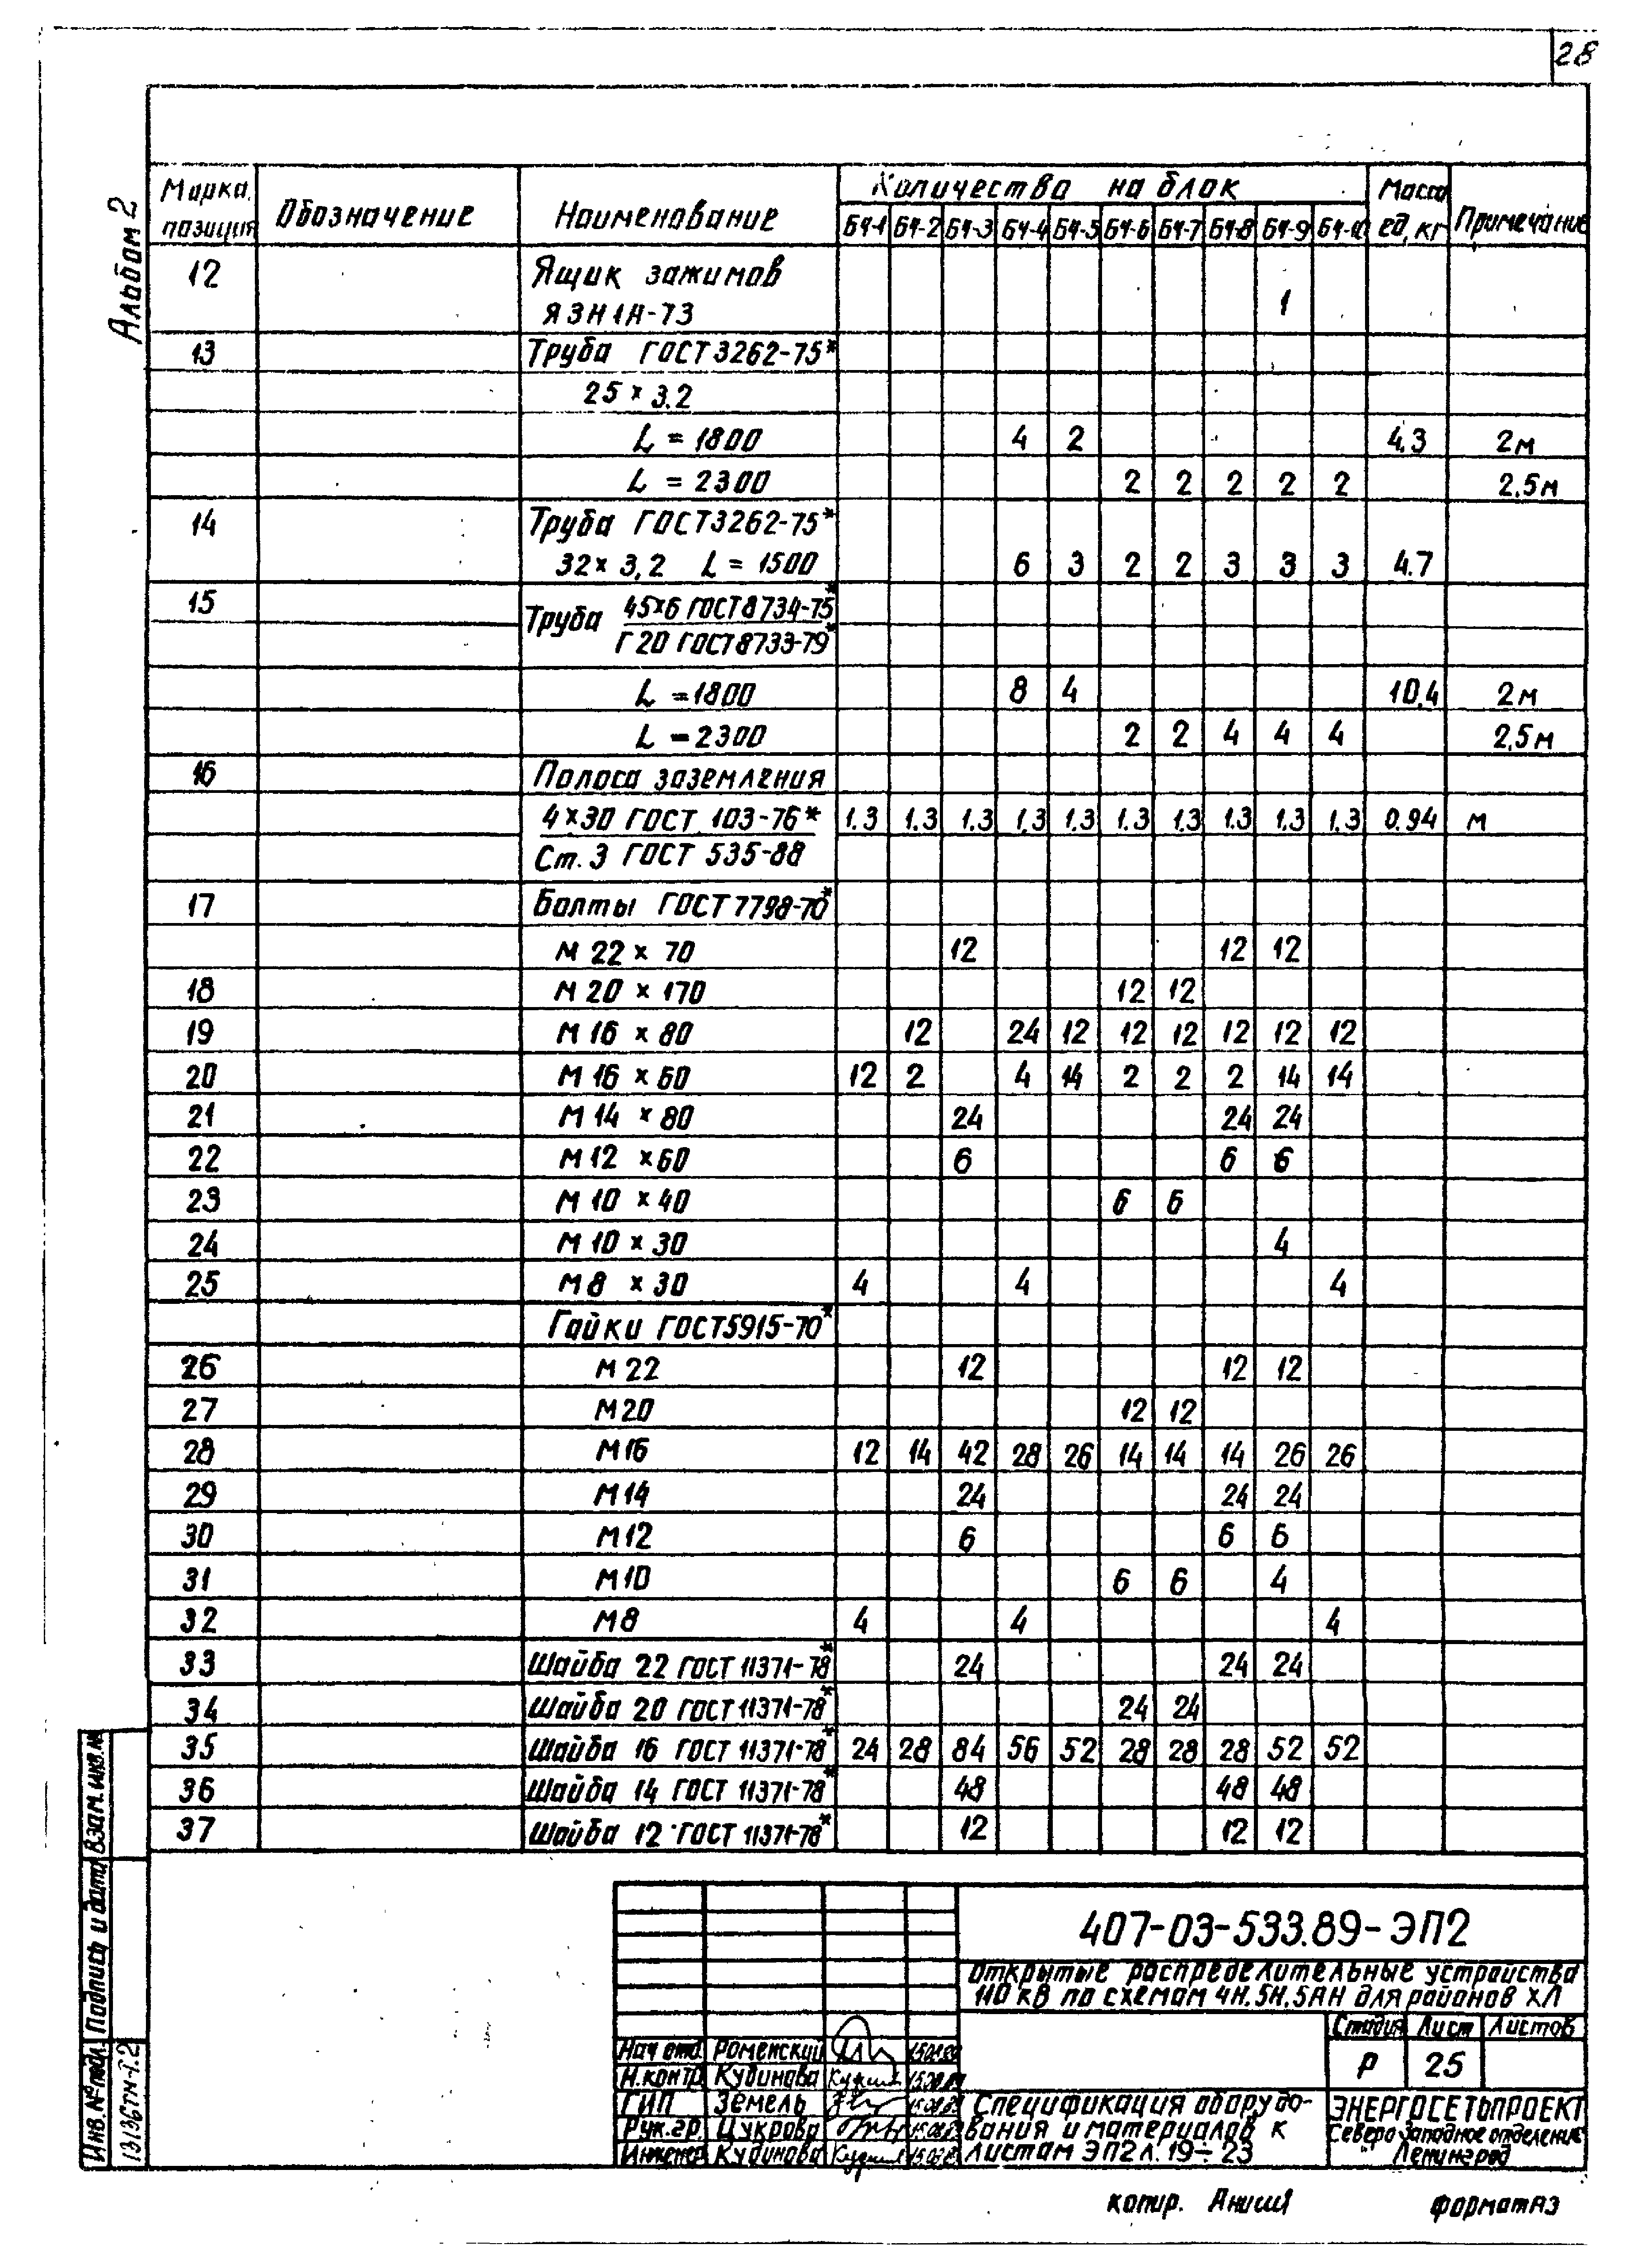 28
Альбом 2
Марка позиция Обозначение Наименование Количество на блок Масса ед, кг Примечание
Б4-1 Б4-2 Б4-3 Б4-4 Б4-5 Б4-6 Б4-7 Б4-8 Б4-9 Б4-10
12 Ящик зажимов
ЯЗН1А-73 1
13 Труба ГОСТ 3262-75*
25 х 3.2
L = 1800 4 2 4,3 2м
L = 2300 2 2 2 2 2 2,5м
14 Труба ГОСТ 3262-75*
32х 3,2 L = 1500 6 3 2 2 3 3 3 4.7
15 Труба 45х6 ГОСТ 8734-75*
Г 20 ГОСТ 8733-79*
L = 1800 8 4 10,4 2м
L = 2300 2 2 4 4 4 2,5м
16 Полоса заземления
4х30 ГОСТ 103-76* 1.3 1.3 1.3 1.3 1.3 1.3 1.3 1.3 1.3 1.3 0.94 м
Ст. 3 ГОСТ 535-88
17 Болты ГОСТ 7798-70*
М 22 х 70 12 12 12
18 М 20 х 170 12 12
19 М 16 х 80 12 24 12 12 12 12 12 12
20 М 16 х 60 12 2 4 14 2 2 2 14 14
21 М 14 х 80 24 24 24
22 М 12 х60 6 6 6
23 М 10 х 40 6 6
24 М 10 х 30 4
25 М 8 х 30 4 4 4
Гайки ГОСТ 5915-70*
26 М 22 12 12 12
27 М20 12 12
28 М16 12 14 42 28 26 14 14 14 26 26
29 М14 24 24 24
30 М12 6 6 6
31 М10 6 6 4
32 М8 4 4 4
33 Шайба 22 ГОСТ 11371-78* 24 24 24
34 Шайба 20 ГОСТ 11371-78* 24 24
35 Шайба 16 ГОСТ 11371-78* 24 28 84 56 52 28 28 28 52 52
36 Шайба 14 ГОСТ 11371-78* 48 48 48
37 Шайба 12 ГОСТ 11371-78* 12 12 12
Взам. инв. №
Подпись и дата
Инв. № подл.
13136тм-т.2
407-03-533.89-ЭП2
Открытые распределительные устройства
110 кВ по схемам 4Н, 5Н, 5АН для районов ХЛ
Стадия Лист Листов
Р 25
Нач отд. Роменский
Н.контр Кудинова
ГИП Земель
Рук.гр. Цукрова
Инженер Кудинова
Спецификация оборудо-
вания и материалов к
листам ЭП2 л. 19÷23
ЭНЕРГОСЕТЬПРОЕКТ
Северо Западное отделение
Ленинград
копир. формат А3